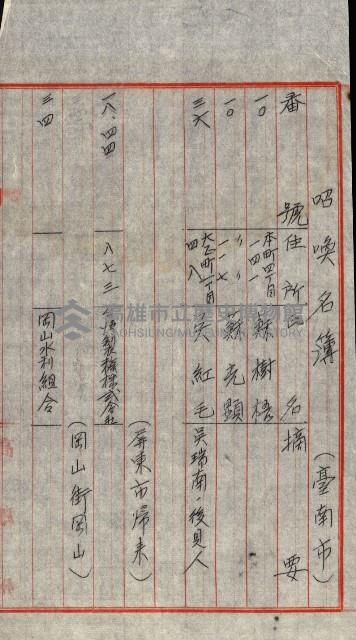 召喚名簿（臺南市）
番號 住所 氏名 摘要
一〇 本町四丁目一四一 蘇樹梧
一〇 〃 〃 一一七 蘇克顕
三六 大正町一丁目四八 吳紅毛 吳瑞南・後見人
（屏東市歸来）
一八・四四 八七三 台湾製糖株式会社
（岡山街岡山）
三四 岡山水利組合
高雄市立歷史博物館
KAOHSIUNG MUSEUM OF HISTORY